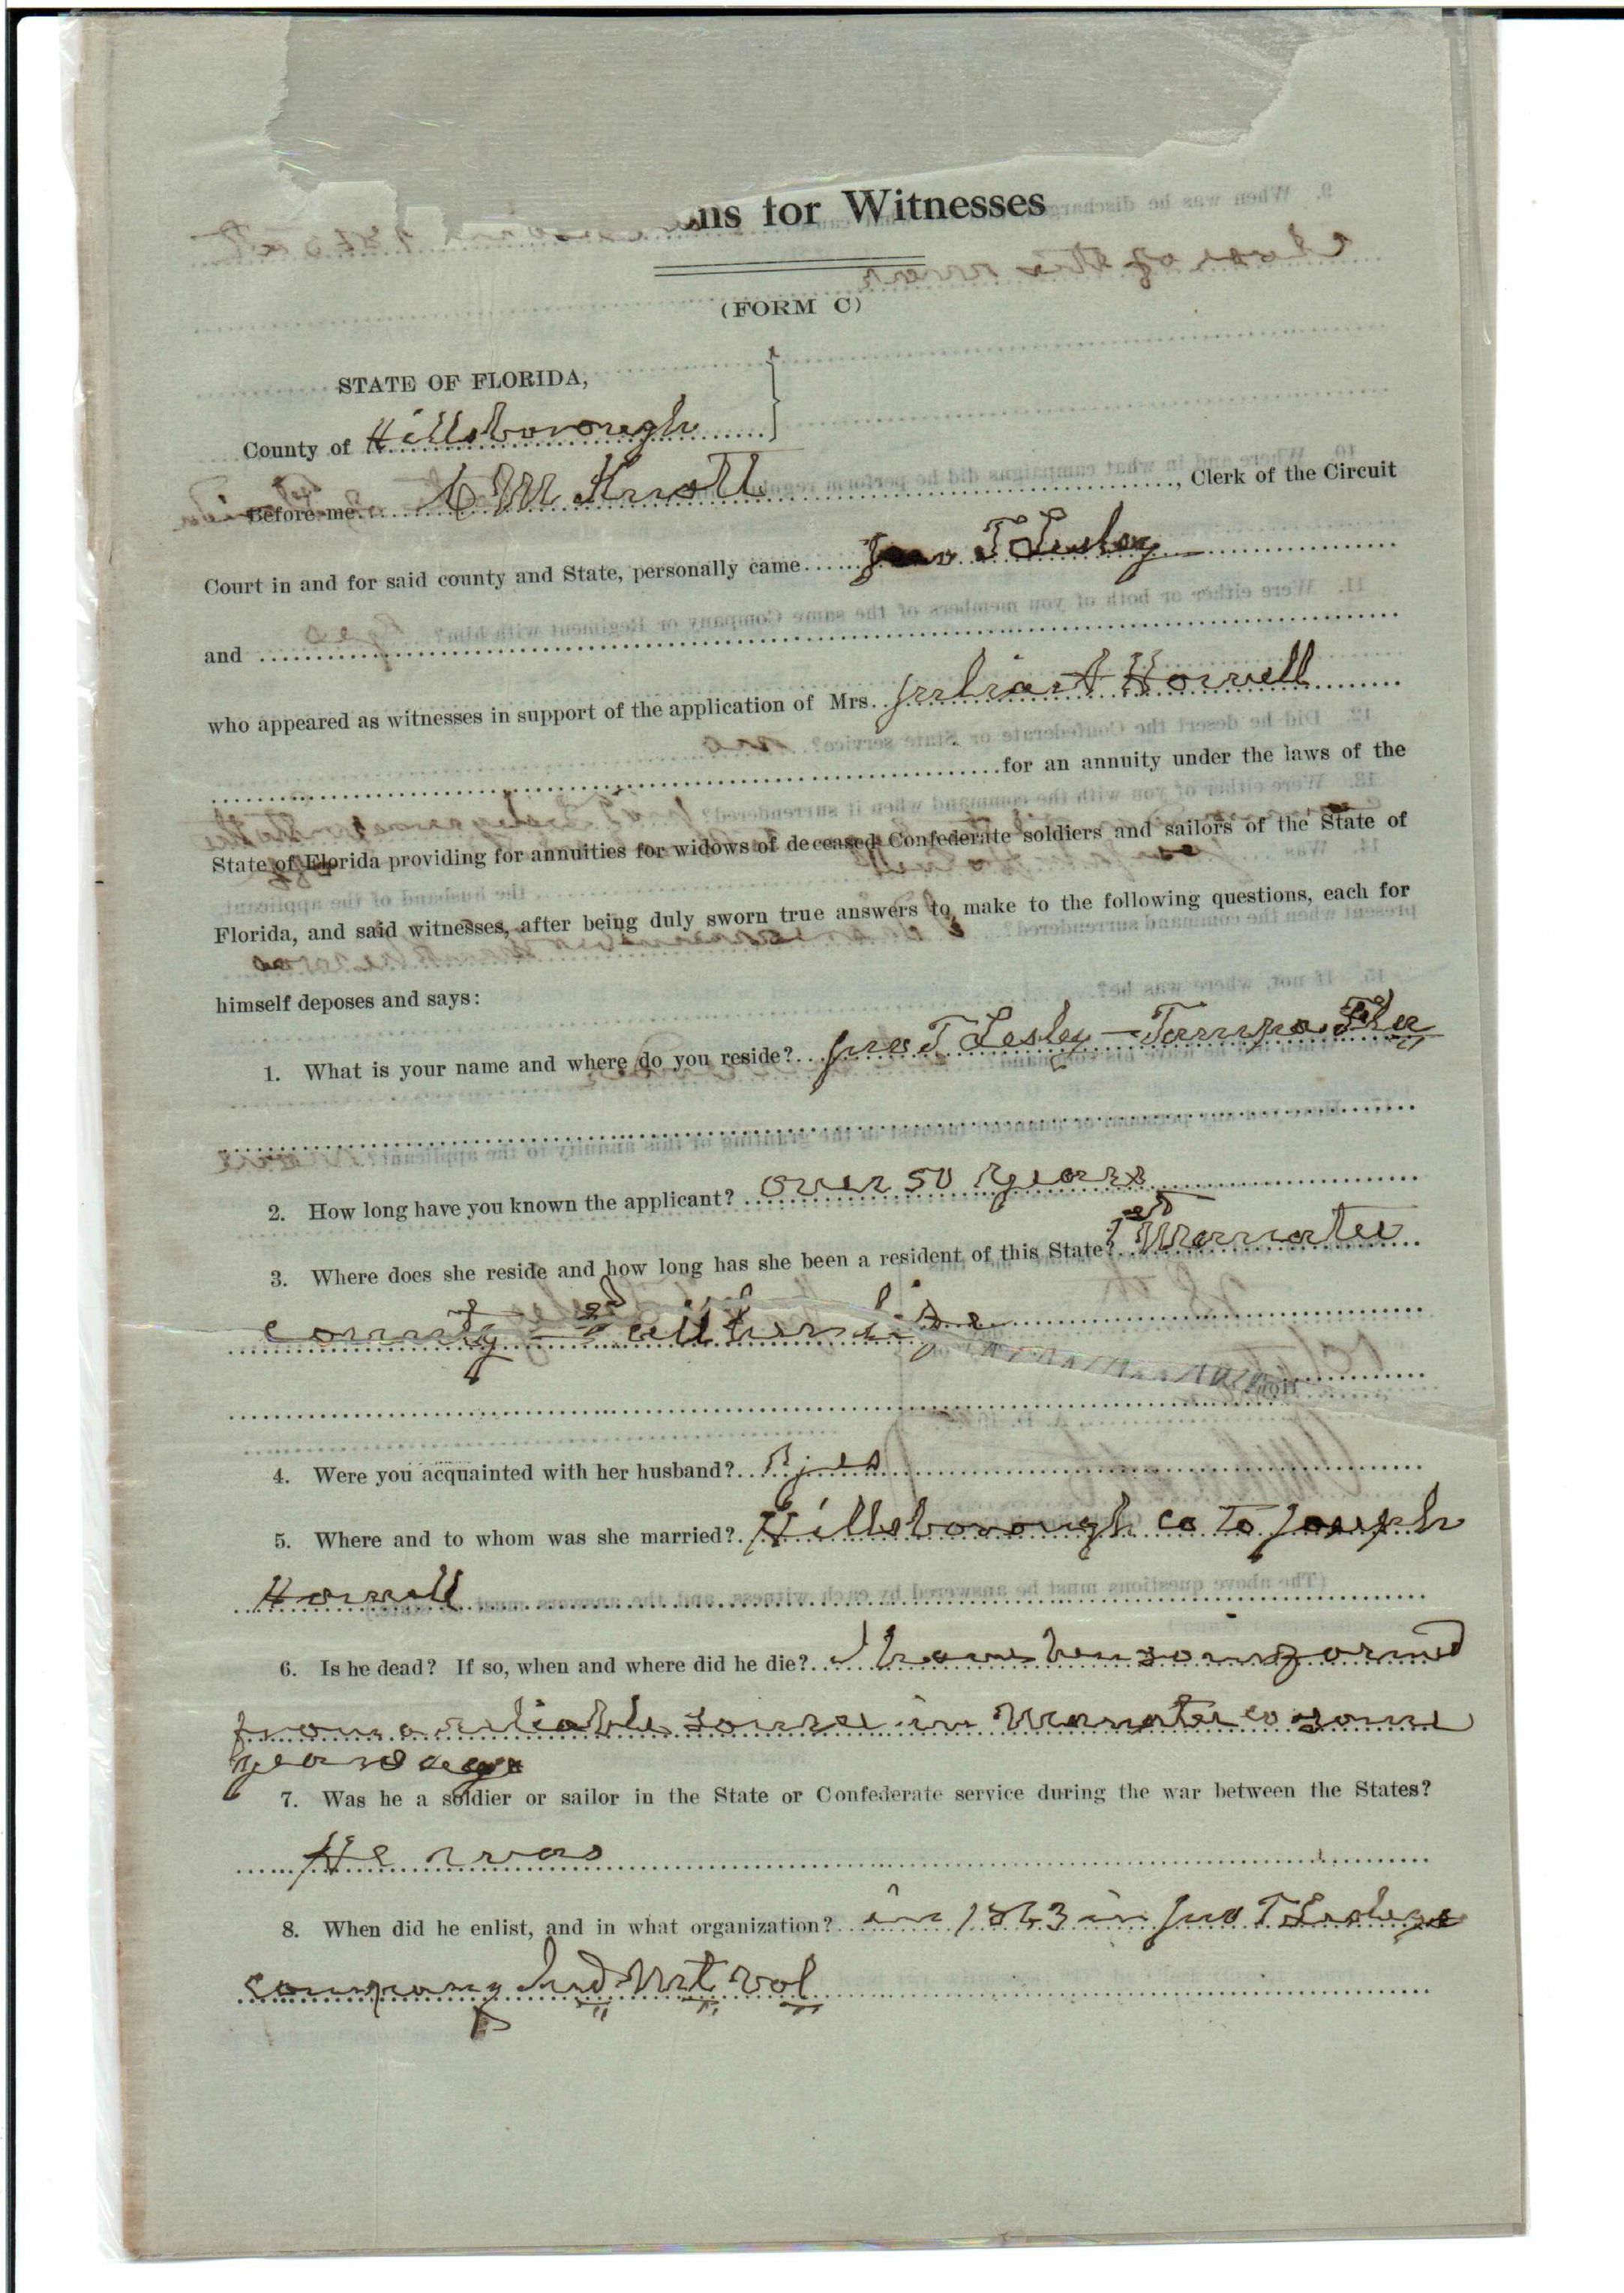 ns for Witnesses
(FORM C)
STATE OF FLORIDA,
County of Hillsborough
Before me C M Knott, Clerk of the Circuit
Court in and for said county and State, personally came Jno T Lesley
and
who appeared as witnesses in support of the application of Mrs. Julia A Howell
for an annuity under the laws of the
State of Florida providing for annuities for widows of deceased Confederate soldiers and sailors of the State of
Florida, and said witnesses, after being duly sworn true answers to make to the following questions, each for
himself deposes and says:
1. What is your name and where do you reside? Jno T Lesley - Tampa Fla
2. How long have you known the applicant? over 50 years
3. Where does she reside and how long has she been a resident of this State? 1st Manatee
county - 2d all her life
4. Were you acquainted with her husband? yes
5. Where and to whom was she married? Hillsborough co to Joseph
Howell
6. Is he dead? If so, when and where did he die? I have ben so informed
from a reliable source in Manatee co some
years ago
7. Was he a soldier or sailor in the State or Confederate service during the war between the States?
He was
8. When did he enlist, and in what organization? in 1863 in Jno T Lesleys
company Ind Mt Vol